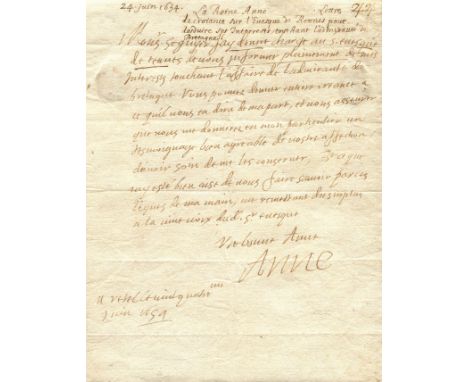 24. juin 1654. La Reine Anne Lettre
de creance sur l'Evesque de Rennes pour
traitter ses Interests touchant l'admirauté de
Bretagne
Monsr seguier jay donné charge au sr evesque
de rennes de vous informer plainement de mes
interests touchant l'affaire de l'admirauté de
bretagne vous pouvez donner entiere creance a
ce quil vous en dira de ma part, et vous asseurer
que vous me donnerez en mon particulier un
tesmoignage bien agreable de vostre affection
davoir soin de me les conserver, Et ce que
jay esté bien aise de vous faire savoir par ces
lignes de ma main, me remettant du surplus
a la vive voix dud. sr evesque
Vostre bonne Amie
Anne
juin 1654